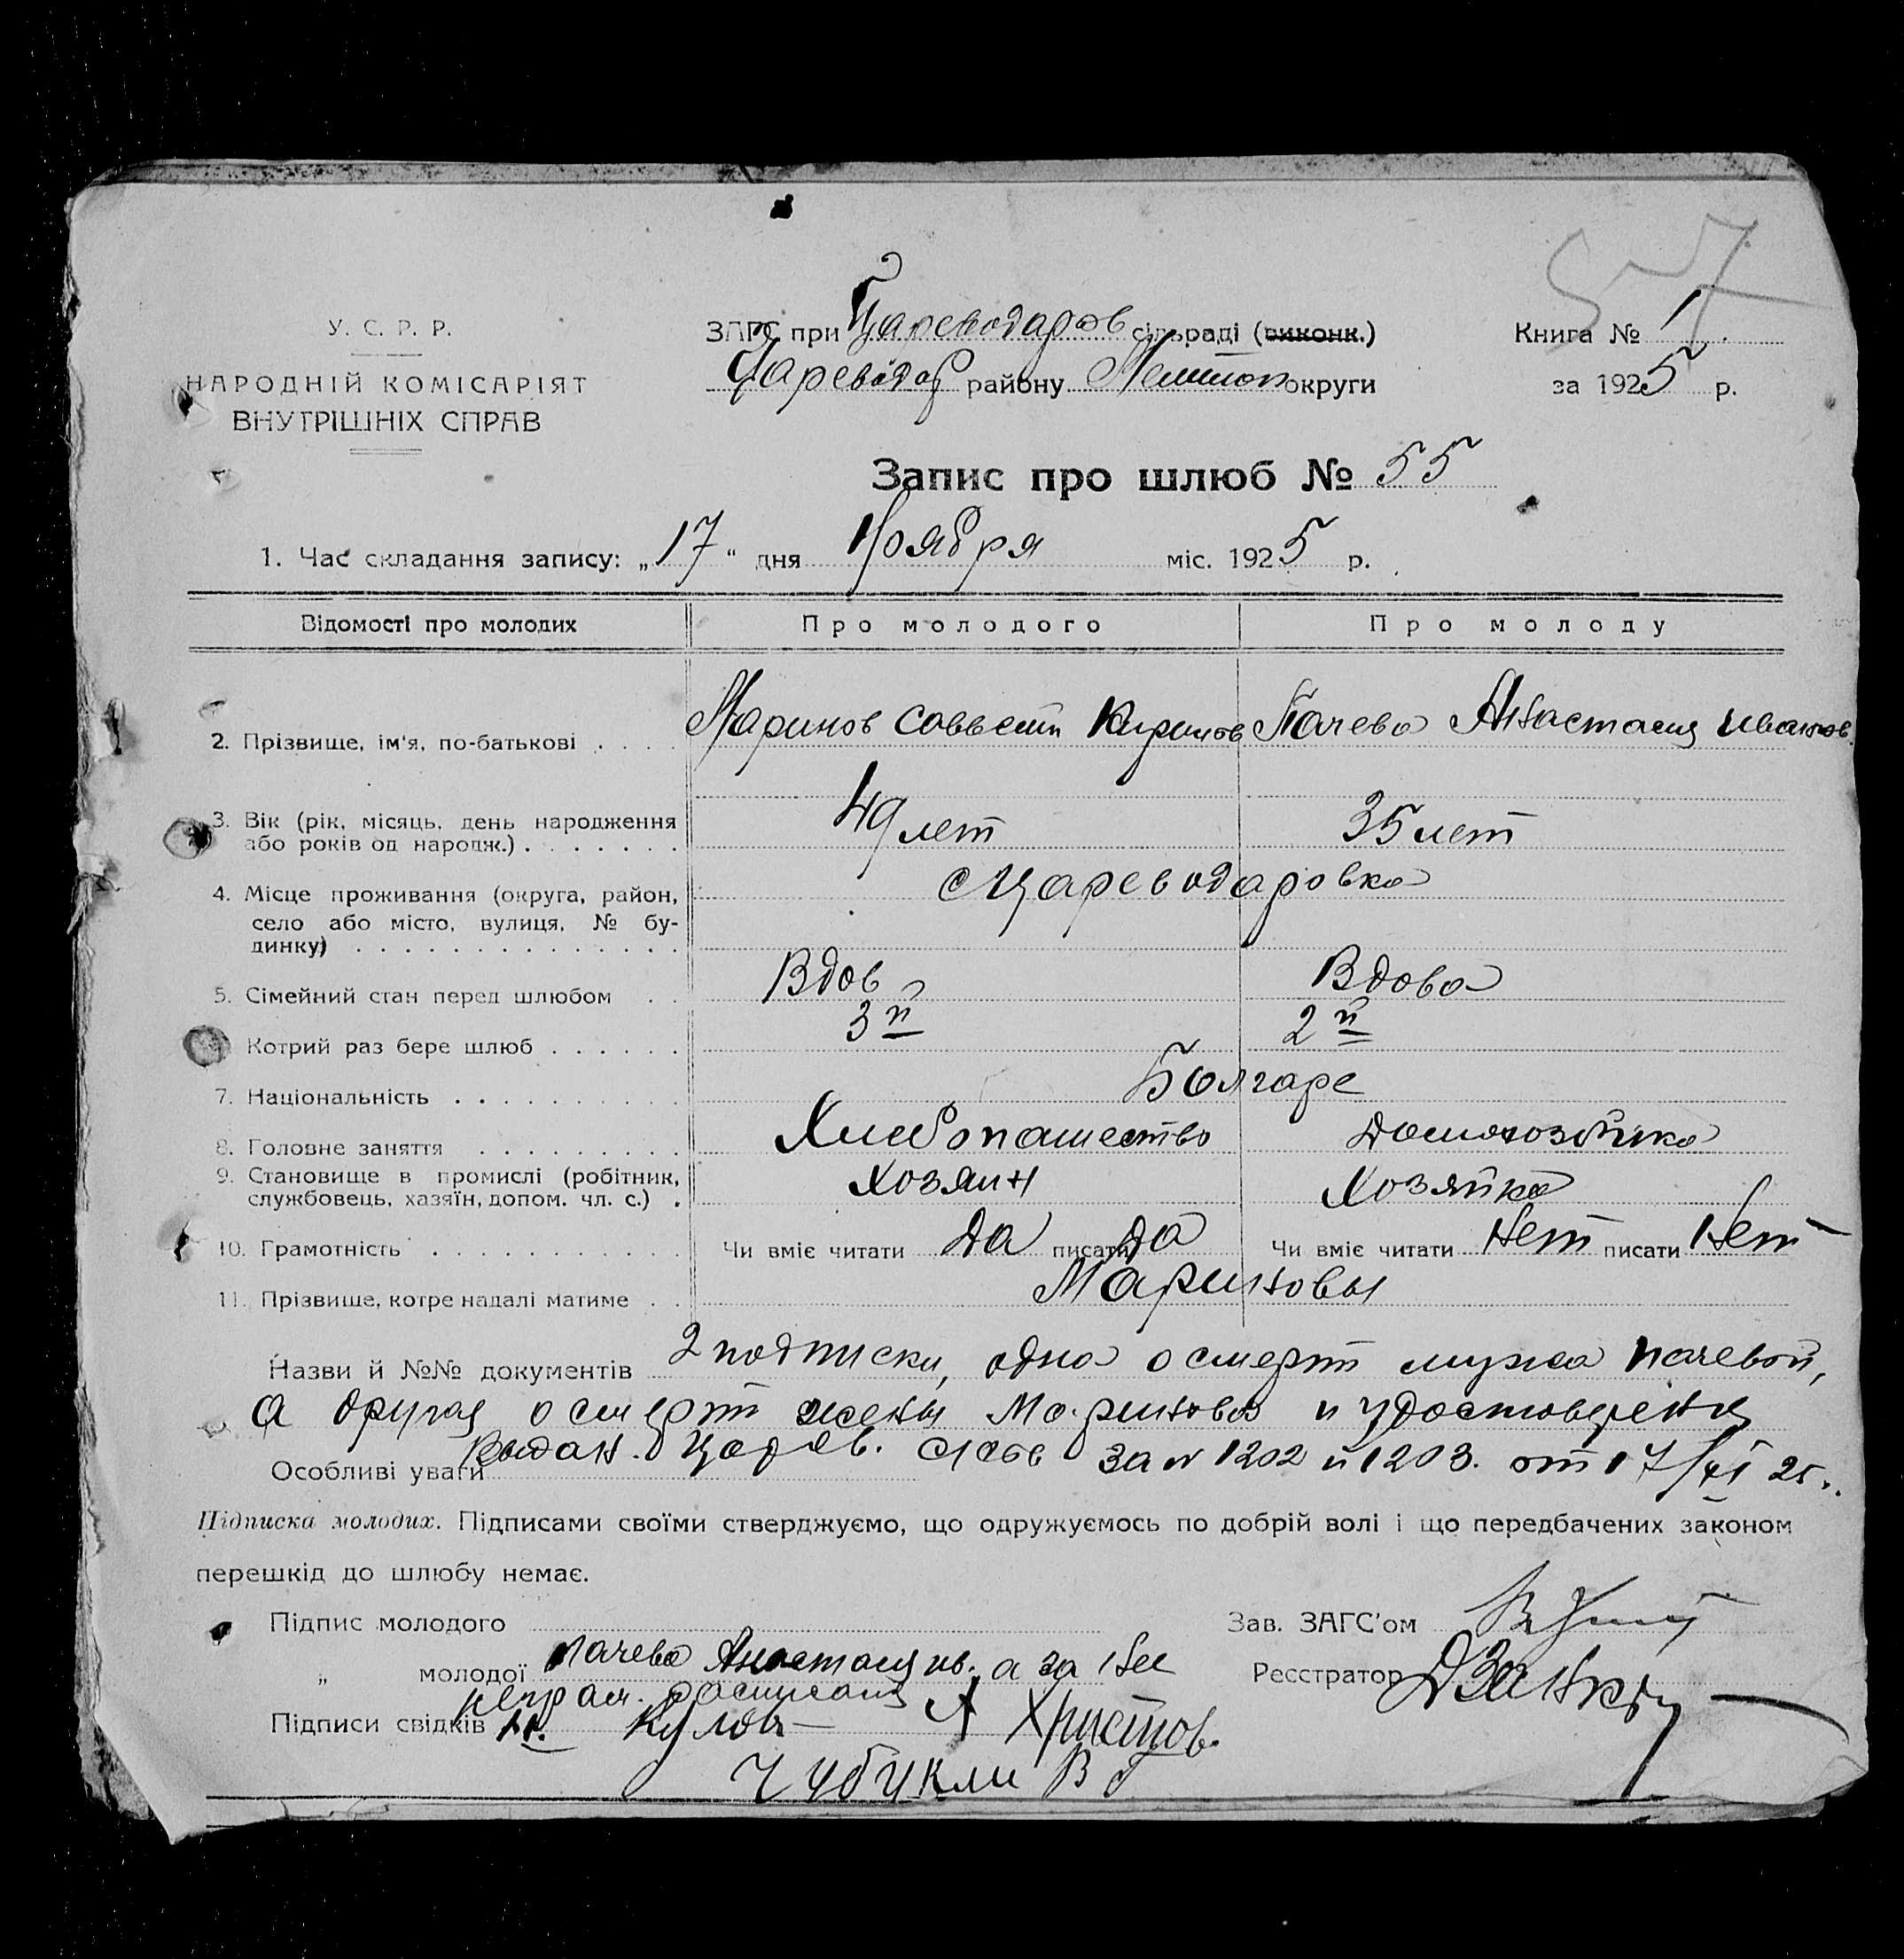 57
У. С. Р. Р.
НАРОДНІЙ КОМІСАРІЯТ
ВНУТРІШНІХ СПРАВ
ЗАГС при Цареводаров сільраді (виконк.)
Цареводар району Мелитоп округи
Книга № 1
за 1925 р.
Запис про шлюб № 55
1. Час складання запису: „17“ дня Ноября міс. 1925 р.
Відомості про молодих Про молодого Про молоду
2. Прізвище, ім'я, по-батькові . . . . Маринов Кирилов Пачева Анастасия Иванов.
3. Вік (рік, місяць, день народження
або років од народж.) . . . . . . . 49 лет 35 лет
4. Місце проживання (округа, район, с Цареводаровка
село або місто, вулиця, № бу-
динку) . . . . . . . . . . . . . .
5. Сімейний стан перед шлюбом . . Вдов Вдова
Котрий раз бере шлюб . . . . . . 3й 2й
7. Національність . . . . . . . . . . Болгаре
8. Головне заняття . . . . . . . . . Хлебопашество Домохозяйка
9. Становище в промислі (робітник,
службовець, хазяїн, допом. чл. с.) . Хозяин Хозяйка
10. Грамотність . . . . . . . . . . . Чи вміє читати Да писати Да Чи вміє читати Нет писати Нет
11. Прізвище, котре надалі матиме . . Мариновы
Назви й №№ документів 2 подписки, одна о смерт мужа Пачевой,
а другая о смерти жены Маринова и удостоверения
Особливі уваги Выдан. Царев. с/сов за № 1202 и 1203. от 17/XI 25.
Підписка молодих. Підписами своїми стверджуємо, що одружуємось по добрій волі і що передбачених законом
перешкід до шлюбу немає.
Підпис молодого
Зав. ЗАГС'ом
„ молодої Пачева Анастасия ив. а за Нее
Реєстратор
неграм. расписался
Підписи свідків Кулов Христов.
Чубукли В Г